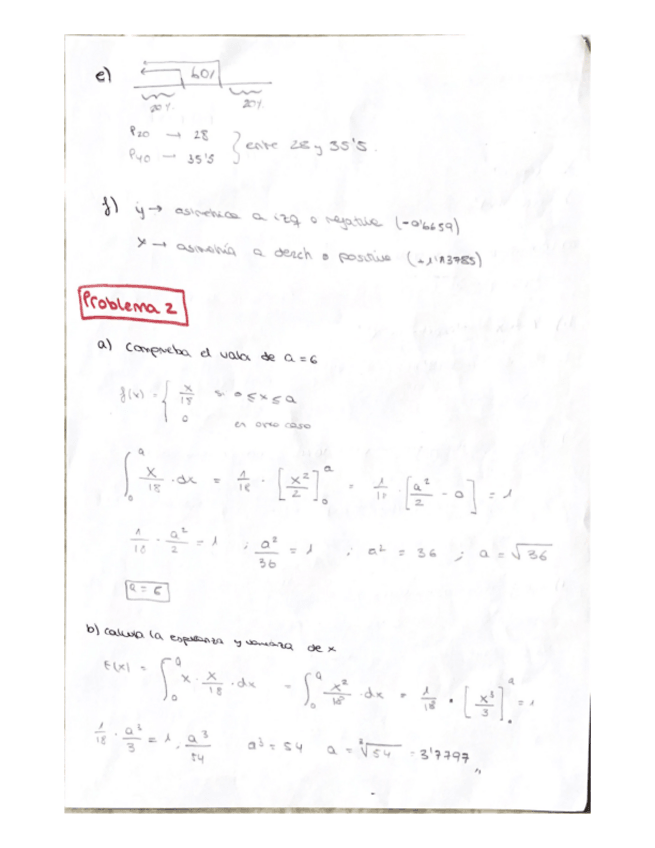 e) 60%
20%. 20%.
P20 → 28
P40 → 35'5 } entre 28 y 35'5.
f) y → asimetrica a izq o negativa (-0'6659)
x → asimetría a derch o positiva (+1'13785)
Problema 2
a) Comprueba el valor de a = 6
f(x) = { x/18 si 0 ≤ x ≤ a
0 en otro caso
∫₀ᵃ x/18 · dx = 1/18 · [x²/2]₀ᵃ = 1/18 · [a²/2 - 0] = 1
1/18 · a²/2 = 1 ; a²/36 = 1 ; a² = 36 ; a = √36
a = 6
b) calcula la esperanza y varianza de x
E(x) = ∫₀ᵃ x · x/18 · dx = ∫₀ᵃ x²/18 · dx = 1/18 · [x³/3]₀ᵃ = 1
1/18 · a³/3 = 1 . a³/54 a³ = 54 a = ³√54 = 3'7797 ,,